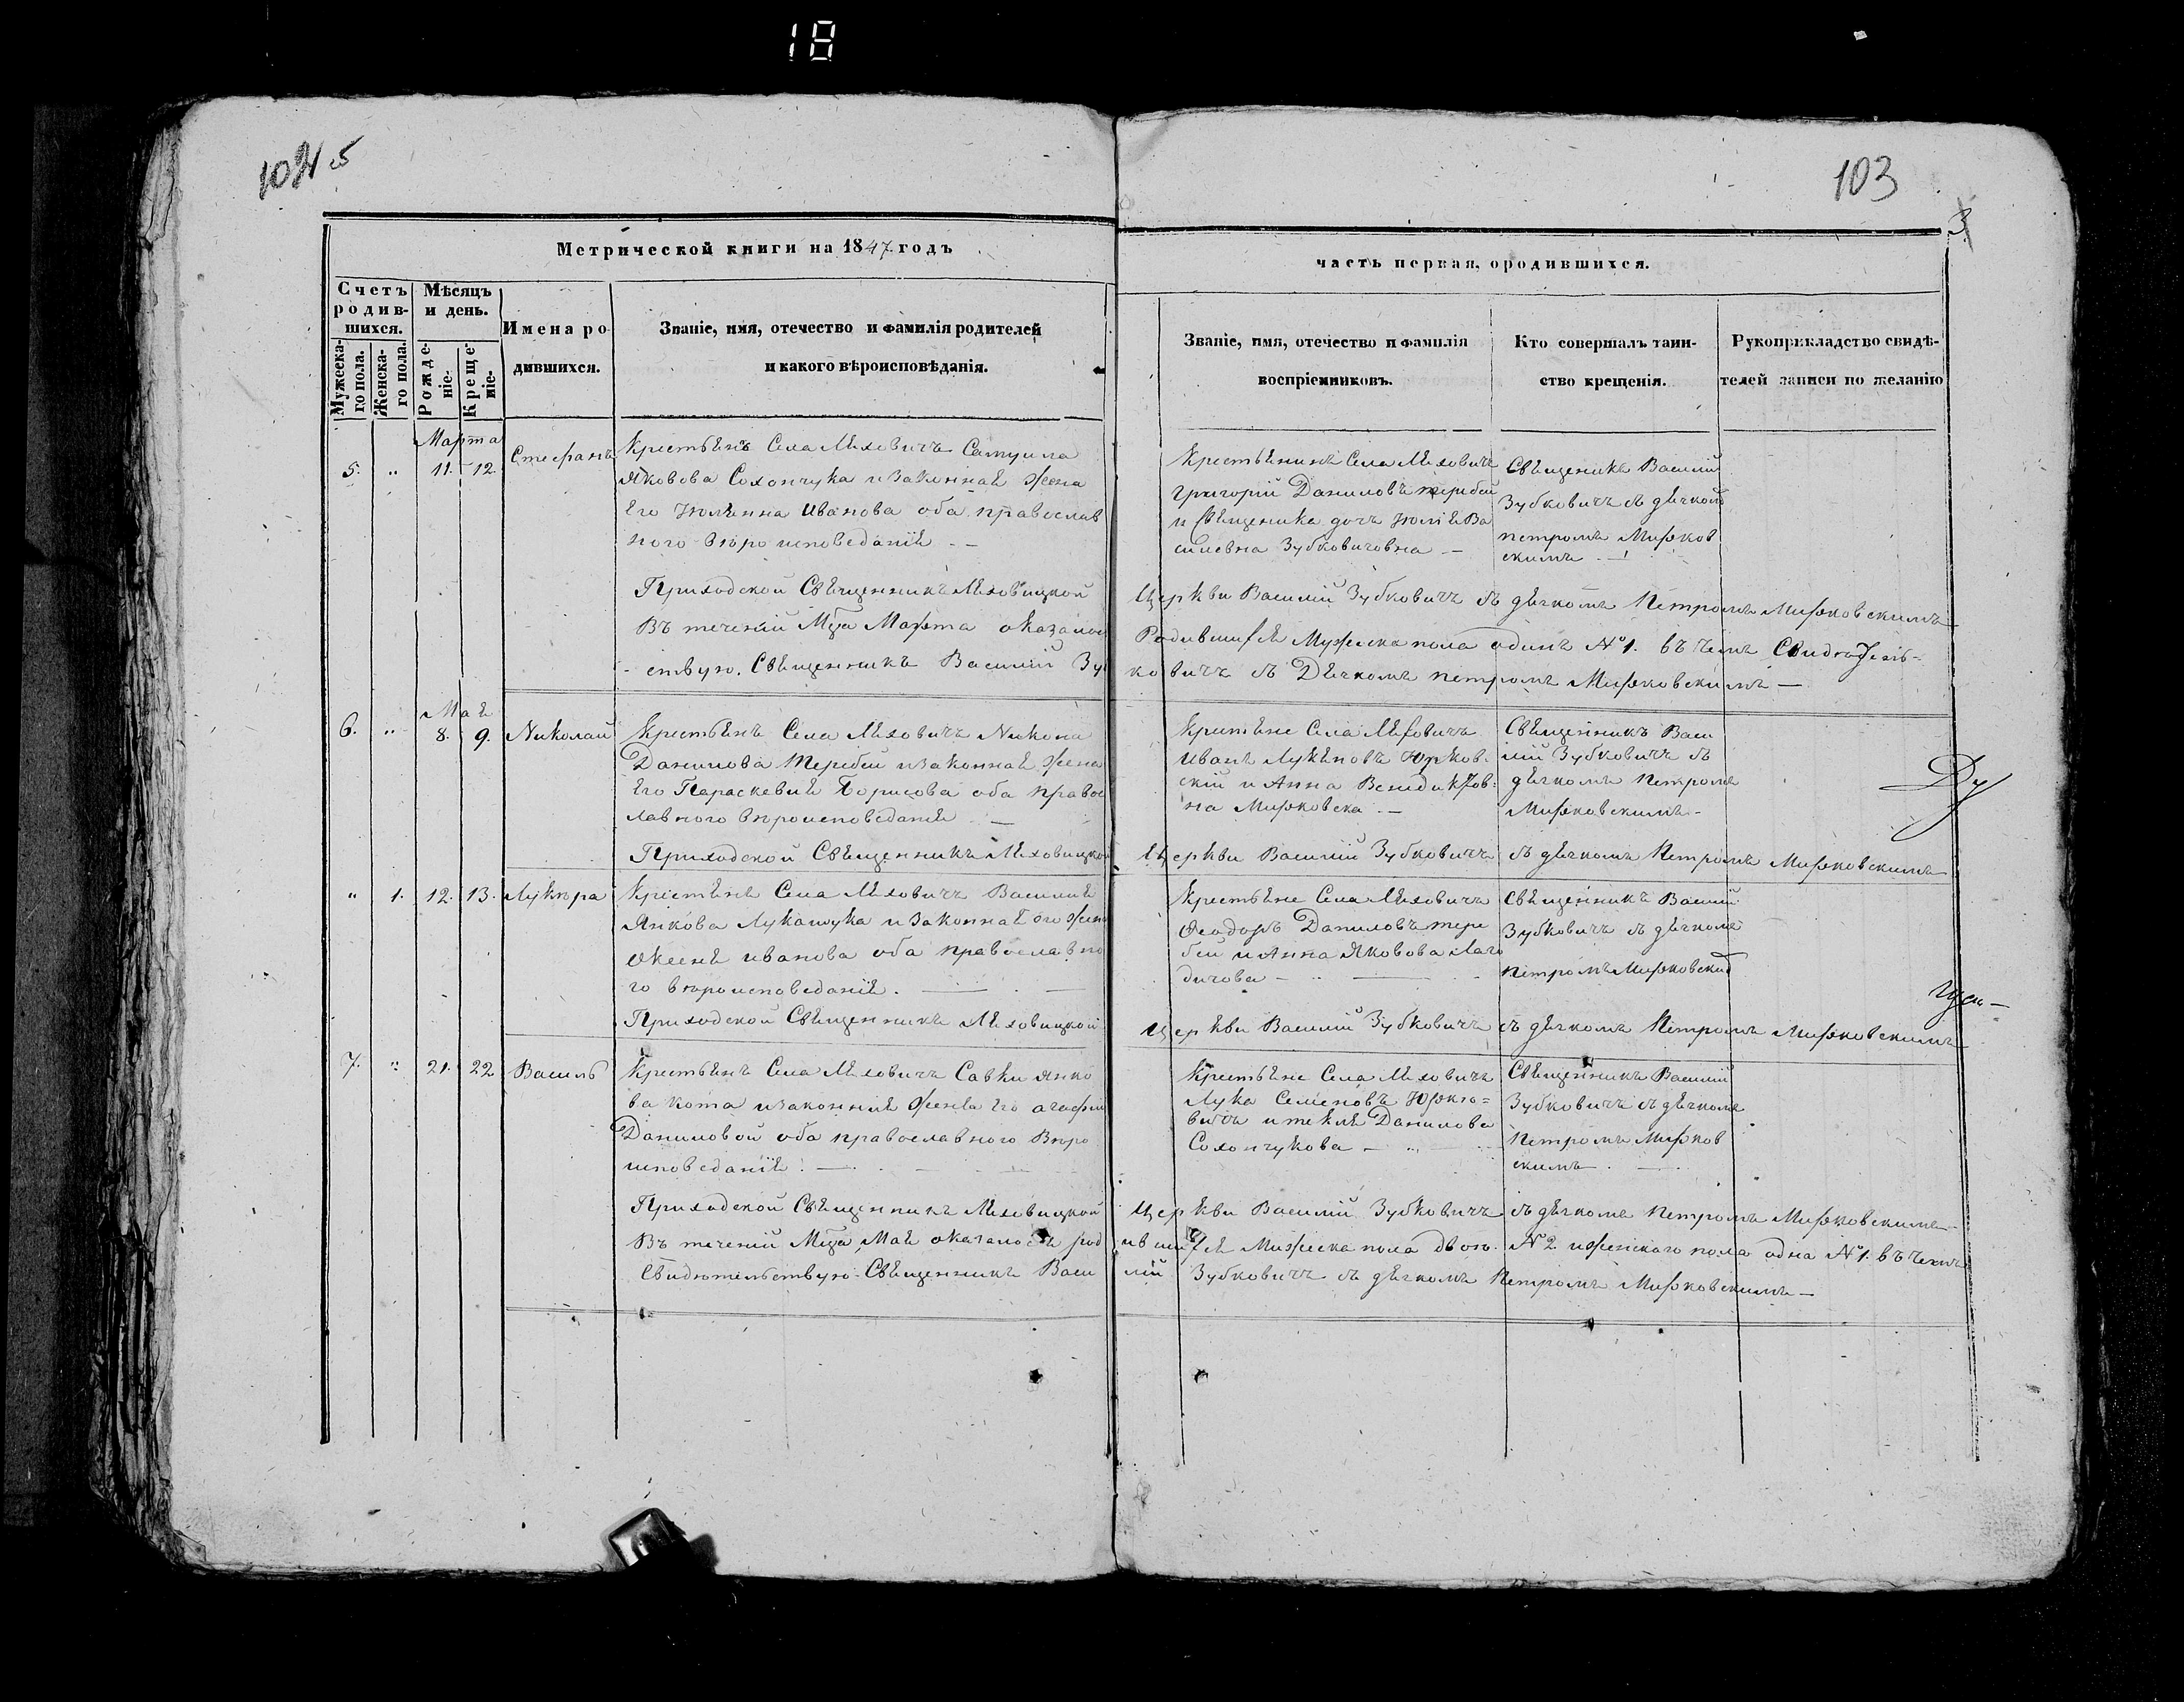 18
103
3
Метрической книги на 1847 годъ
часть первая, ородившихся.
Счетъ родив-шихся.
Мѣсяцъ и день.
Имена ро-
дившихся.
Званіе, имя, отечество и фамилія родителей
и какого вѣроисповѣданія.
Мужеска-го пола.
Женска-го пола.
Рожде-ніе.
Креще-ніе.
Званіе, имя, отечество и фамилія
воспріемниковъ.
Кто совершалъ таин-
ство крещенія.
Рукоприкладство свидѣ-
телей записи по желанію
Марта
5. „ 11. 12. Стефанъ
Крестьянъ Села Ляховичъ Самуила
Яковова Солончука и законная жена
Его Иванова оба православ
ного вѣроисповеданія —
Крестьянинъ Села Ляховичъ
Григорій Даниловъ теребей
и Священика дочь Юлія Ва
силевна Зубковичовна —
Священикъ Василій
Зубковичъ съ дячкомъ
петромъ Мирков
скимъ —
Приходской Священникъ Ляховицкой Церкви Василій Зубковичъ съ дячкомъ Петромъ Мирковскимъ
Въ теченіи Мца Марта оказалось Родившихся Мужеска пола одинъ №1. въ чемъ Свидѣтель-
ствую. Священникъ Василій Зубковичъ съ Дячкомъ петромъ Мирковскимъ —
Мая
6. „ 8. 9. Николай
Крестьянъ Села Ляховичъ Никона
Данилова Теребея и законная жена
Его Параскевия Борисова оба право
лавного вѣроисповеданія —
Крестяне Села Ляховичъ
Иванъ Лукяновъ Юрков-
скій и Анна Венидиктов-
на Мирковска —
Священникъ Васи
лій Зубковичъ съ
дячкомъ Петромъ
Мирковскимъ —
Приходской Священникъ Ляховицкой Церкви Василій Зубковичъ съ дячкомъ Петромъ Мирковскимъ
„ 1. 12. 13. Лукѣра
Крестяне Села Ляховичъ Василия
Янкова Лукашука и законная его жена
Оксеня иванова оба православно
го вѣроисповеданія. —
Крестьяне Села Ляховичъ
Феодоръ Даниловъ тере
бей и Анна Яковова Лаго
дичова —
Священникъ Василій
Зубковичъ съ дячкомъ
Петромъ Мирковскимъ
Приходской Священникъ Ляховицкой Церкви Василій Зубковичъ съ дячкомъ Петромъ Мирковскимъ
7. „ 21. 22 Василь
Крестьянъ Села Ляховичъ Савки янко
ва кота и законния жена Его агафии
Даниловой оба православного Вѣро
исповеданія. —
Крестьяне Села Ляховичъ
Лука Семеновъ Юрко-
вичъ и текля Данилова
Солончукова —
Священникъ Василій
Зубковичъ съ дячкомъ
Петромъ Мирков
скимъ —
Приходской Священникъ Ляховицкой Церкви Василій Зубковичъ съ дячкомъ Петромъ Мирковскимъ
Въ теченіи Мца Мая оказалося родившихся Мужеска пола двое №2 и женскаго пола одна №1. въ чемъ
Свидѣтельствую Священникъ Василій Зубковичъ съ дячкомъ Петромъ Мирковскимъ —